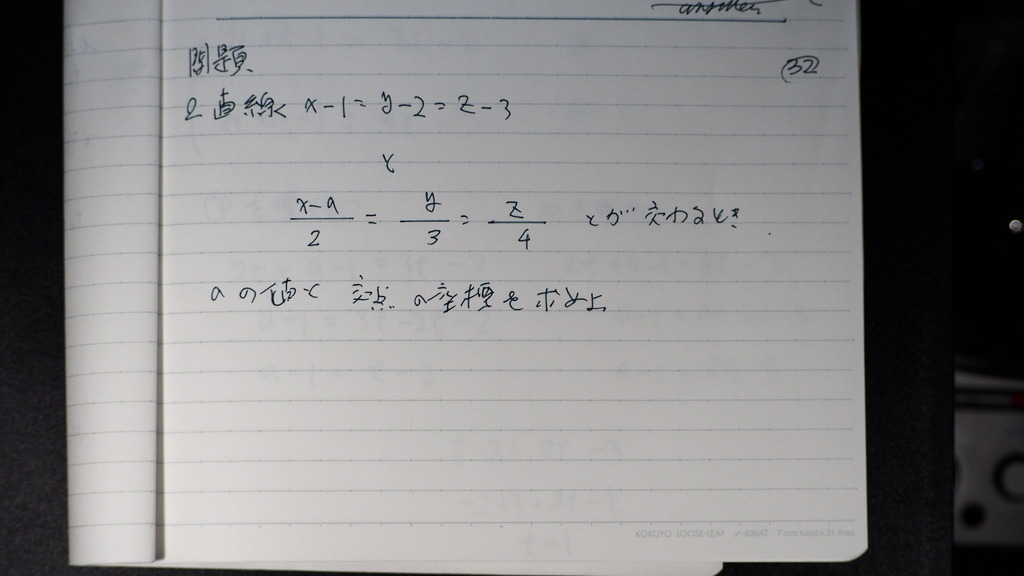 answer
問題
32
2直線 x-1=y-2=z-3
と
x-a/2 = y/3 = z/4 とが交わるとき.
aの値と 交点の座標を求めよ
KOKUYO LOOSE-LEAF ノ-836AT 7mm ruled×31 lines